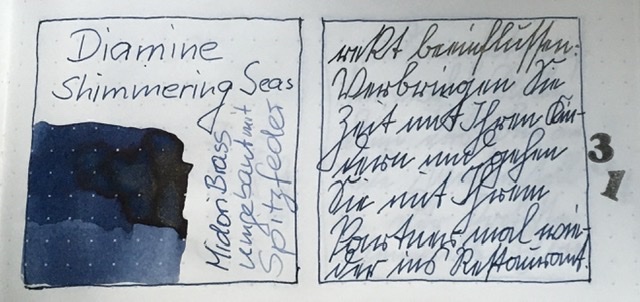 Diamine
Shimmering Seas
Midori Brass
umgebaut mit
Spitzfeder
rekt beeinflussen:
Verbringen Sie
Zeit mit Ihren Kin-
dern und gehen
Sie mit Ihrem
Partner mal wie-
der ins Restaurant.
31